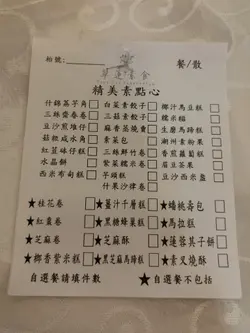 枱號:
餐/散
素食
精美素點心
什錦蒸芋角
三絲齋春卷
豆沙煎堆仔
菇粒咸水角
紅荳砵仔糕
水晶餅
西米布甸糕
白菜素餃子
三菇素餃子
麻香蒸燒賣
素菜包
三絲鮮竹卷
紫菜糯米卷
芋頭糕
什果沙律卷
椰汁馬豆糕
糯米糍
生磨馬蹄糕
潮州素粉果
香煎蘿蔔糕
豆腐花
豆沙西米盞
★桂花卷
★薑汁千層糕
★蟠桃壽包
★紅棗卷
★黑糖蜂巢糕
★馬拉糕
★芝麻卷
★芝麻酥
★蓮蓉其子餅
★椰香紫米糕
★黑芝麻馬蹄糕
★素叉燒酥
自選餐請填件數
★自選餐不包括